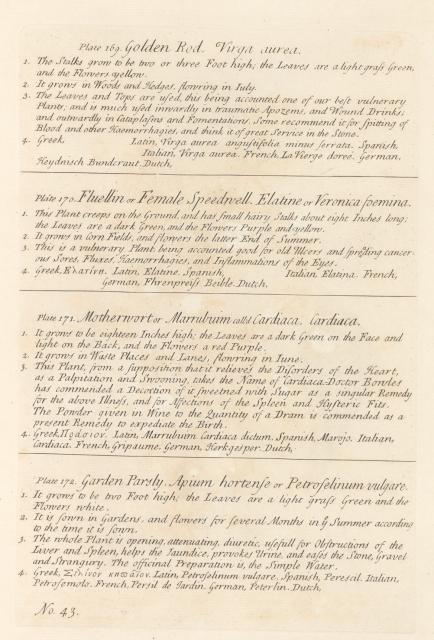 Plate 169. Golden Rod. Virga aurea.
1. The Stalks grow to be two or three Foot high; the Leaves are a light grass Green,
and the Flowers yellow.
2. It grows in Woods and Hedges, flowring in July.
3. The Leaves and Tops are used, this being accounted one of our best vulnerary
Plants; and is much used inwardly in traumatic Apozems, and Wound Drinks;
and outwardly in Cataplasms and Fomentations. Some recommend it for spitting of
Blood and other Haemorrhagies, and think it of great Service in the Stone.
4. Greek, Latin, Virga aurea angustifolia minus serrata. Spanish,
Italian, Virga aurea. French, La Vierge dorée. German,
Heydnisch Bundcraut. Dutch,
Plate 170. Fluellin or Female Speedwell. Elatine or Veronica foemina.
1. This Plant creeps on the Ground, and has small hairy Stalks about eight Inches long;
the Leaves are a dark Green, and the Flowers Purple and yellow.
2. It grows in Corn Fields, and flowers the latter End of Summer.
3. This is a vulnerary Plant being accounted good for old Ulcers and spreading cancer-
ous Sores, Fluxes, Haemorrhagies, and Inflammations of the Eyes.
4. Greek, Ελατίνη. Latin, Elatine. Spanish, Italian, Elatina. French,
German, Ehrenpreiss Beible. Dutch,
Plate 171. Motherwort or Marrubium call'd Cardiaca. Cardiaca.
1. It grows to be eighteen Inches high; the Leaves are a dark Green on the Face and
light on the Back, and the Flowers a red Purple.
2. It grows in Waste Places and Lanes, flowring in June.
3. This Plant, from a supposition that it relieves the Disorders of the Heart,
as a Palpitation and Swooning, takes the Name of Cardiaca. Doctor Bowles
has commended a Decoction of it sweetned with Sugar as a singular Remedy
for the above Illness, and for Affections of the Spleen and Hysteric Fits.
The Powder given in Wine to the Quantity of a Dram is commended as a
present Remedy to expediate the Birth.
4. Greek, Latin, Marrubium Cardiaca dictum. Spanish, Marojo. Italian,
Cardiaca. French, Gripaume. German, Herkgesper. Dutch,
Plate 172. Garden Parsly. Apium hortense or Petroselinum vulgare.
1. It grows to be two Foot high; the Leaves are a light grass Green and the
Flowers white.
2. It is sown in Gardens, and flowers for several Months in ye Summer according
to the time it is sown.
3. The whole Plant is opening, attenuating, diuretic, usefull for Obstructions of the
Liver and Spleen, helps the Jaundice, provokes Urine, and eases the Stone, Gravel
and Strangury. The officinal Preparation is, the Simple Water.
4. Greek, Σελίνον κηπαῖον. Latin, Petroselinum vulgare. Spanish, Perexil. Italian,
Petrosemolo. French, Persil de Jardin. German, Peterlin. Dutch,
No. 43.